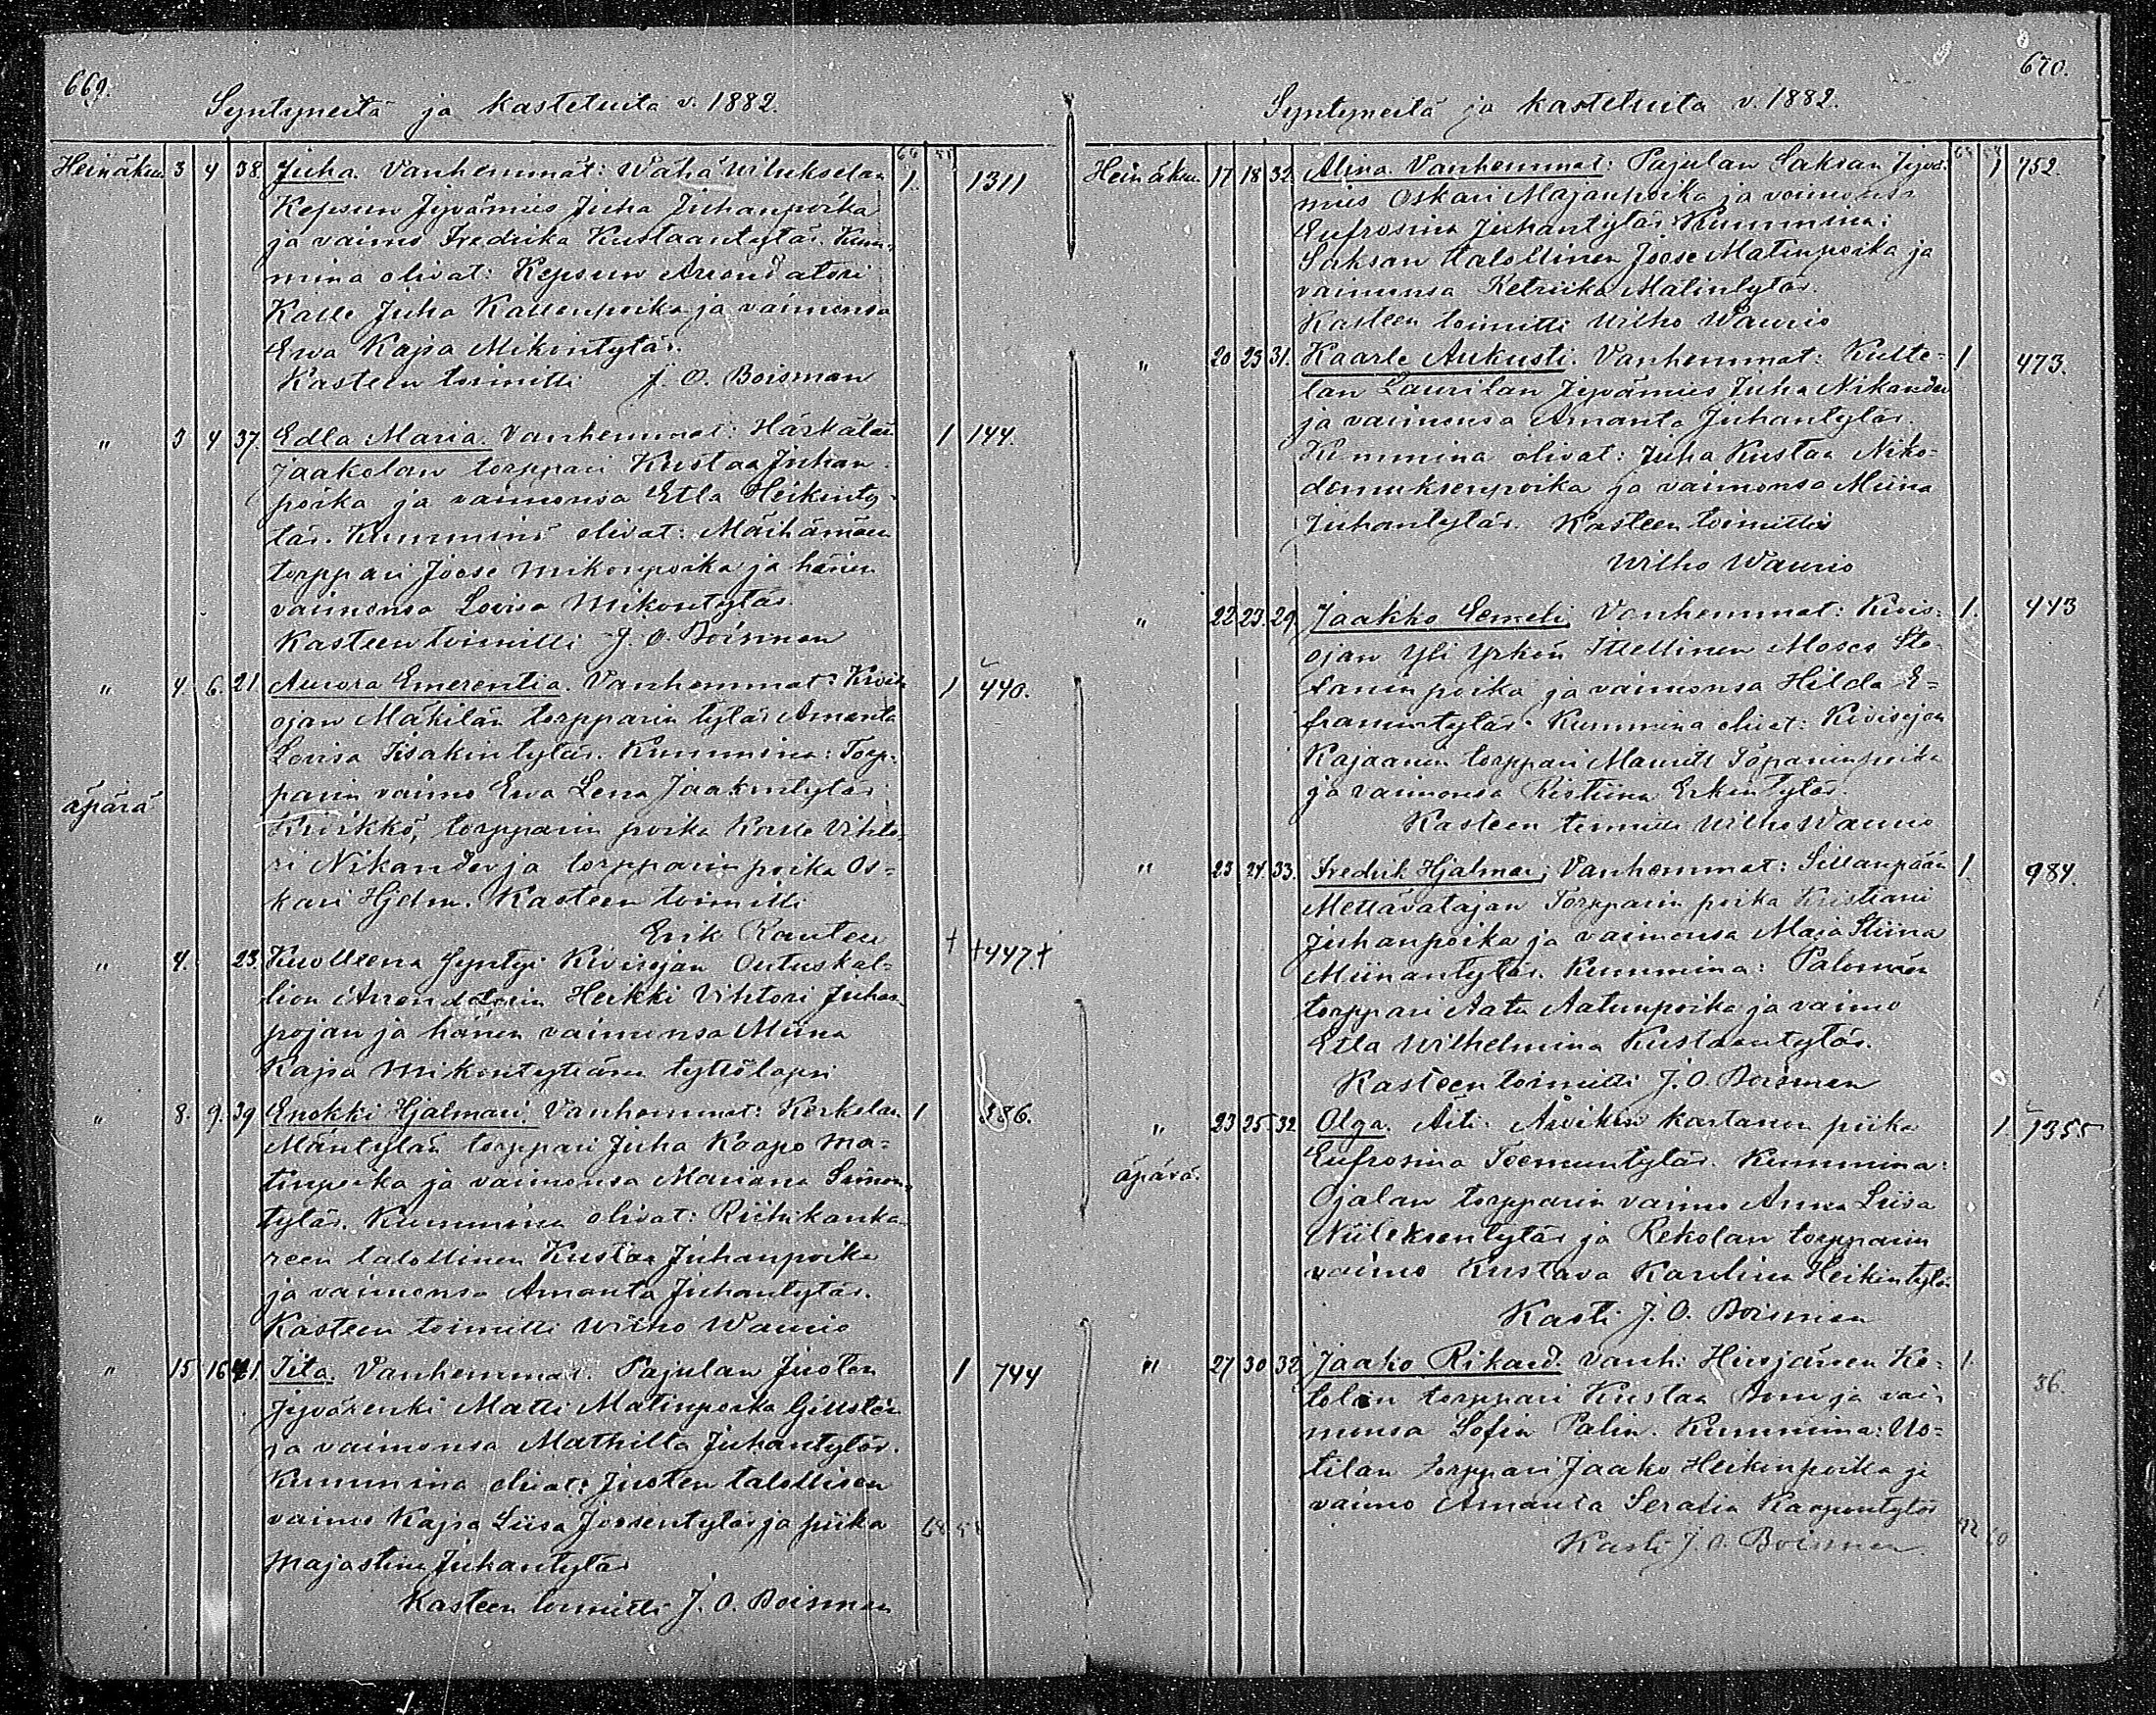 669.
Syntyneitä ja kastetuita v. 1882.
Heinäkuu 3 4 38. Juha. Vanhemmat: Wähä Wilukselan 1. 1311
Kepsun Jyvämies Juha Juhanpoika
ja vaimo Fredrika Kustaantytär. Kum-
mina olivat: Kepsun Arrondatori
Kalle Juha Kallenpoika ja vaimonsa
Ewa Kajsa Mikintytär.
Kasteen toimitti J. O. Boisman
" 3 4 37. Edla Maria. Vanhemmat: Härkälän 1 144.
Jaakolan torppari Kustaa Juhan
poika ja vaimonsa Etla Heikinty-
tär. Kummina olivat:
torppari Joose Mikonpoika ja hänen
vaimonsa Lovisa Mikontytär.
Kasteen toimitti J. O. Boisman
" 4. 6. 21. Aurora Emerentia. Vanhemmat: Kivis 1 440.
ojan Mäkilän torpparin tytär Amanta
Lovisa Iisakintytär. Kummina: Torp-
parin vaimo Ewa Lena Jaakontytär
äpärä
torpparin poika Kalle Vihto-
ri Nikander ja torpparin poika Os-
kari Hjelm. Kasteen toimitti
Erik Rauten
" 4. 23. Kuolleena syntyi Kivisojan Outuskal- † †447.†
lion Arrendatorin Heikki Vihtori Juhan
pojan ja hänen vaimonsa Miina
Kajsa Mikontyttären tyttölapsi
" 8. 9. 39 Enokki Hjalmari. Vanhemmat: Kerkolan 1. 386.
Mäntylän torppari Juha Kaapo Ma-
tinpoika ja vaimonsa Mariana Simon-
tytär. Kummina olivat: Riihikanka-
reen talollinen Kustaa Juhanpoika
ja vaimonsa Amanta Juhantytär.
Kasteen toimitti Wilho Waurio
" 15 16 41. Iita. Vanhemmat. Pajulan Juoten 1 744
Jyvärenki Matti Matinpoika
ja vaimonsa Mathilta Juhantytär.
Kummina olivat: Juoten talollisen
vaimo Kajsa Liisa Joosentytär ja piika
Majastina Juhantytär
Kasteen toimitti J. O. Boisman
670.
Syntyneitä ja kastetuita v. 1882.
Heinäku. 17 18 32. Alina. Vanhemmat: Pajulan Saksan Jyvä- 1 752.
mies Oskari Majanpoika ja vaimonsa
Eufrosina Juhantytär. Kummina:
Saksan talollinen Joose Matinpoika ja
vaimonsa Retriika Matintytär.
Kasteen toimitti Wilho Waurio
" 20 23 31. Kaarle Aukusti. Vanhemmat: Kulte- 1 473.
lan Laurilan Jyvämies Juha Nikander
ja vaimonsa Amanta Juhantytär.
Kummina olivat: Juha Kustaa Niko-
demuksenpoika ja vaimonsa Miina
Juhantytär. Kasteen toimitti
Wilho Waurio
" 22 23. 29. Jaakko Eemeli. Vanhemmat: Kivis- 1. 443
ojan Yli Yrkön Itellinen Moses Ste-
fanin poika ja vaimonsa Hilda E-
framintytär. Kummina olivat: Kivisojan
Kajaanin torppari Maurits Tapaninpoika
ja vaimonsa Ristiina Erkintytär.
Kasteen toimitti Wilho Waurio
" 23 24. 33. Fredrik Hjalmar; Vanhemmat: Sillanpään 1. 984.
Mettävatajan Torpparin poika Kristiani
Juhanpoika ja vaimonsa Maia Stiina
Miinantytär. Kummina: Palomäen
torppari Aatu Aatunpoika ja vaimo
Etla Wilhelmina Kustaantytär.
Kasteen toimitti J. O. Boisman
" 23 25. 32 Olga. Äiti: kartanon piika 1 1355
äpärä.
Eufrosina Toemuntytär. Kummina:
Ojalan torpparin vaimo Anna Liisa
Niileksentytär ja Rekolan torpparin
vaimo Kustava Karolina Heikintytär
Kasti J. O. Boisman
" 27 30 32. Jaako Rikard. Vanh: Hirsjärven Ko- 1. 36.
tolan torppari Kustaa Bom ja vai
monsa Sofia Palin. Kummina: Uo-
tilan torppari Jaako Heikinpoika ja
vaimo Amanta Serafia Kaapontytär
Kasti J. O. Boisman